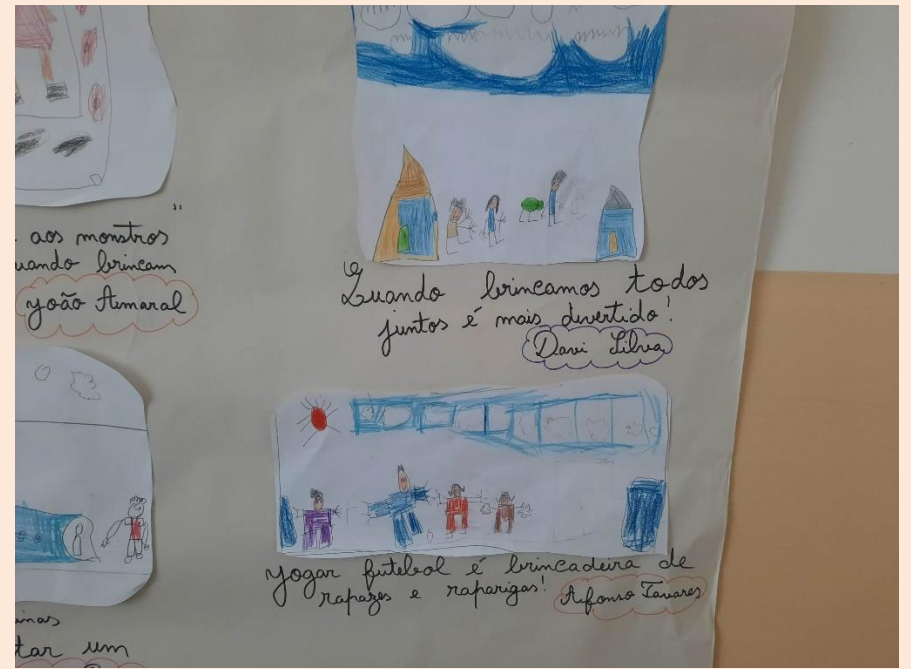 aos monstros
uando brincam
João Amaral
Quando brincamos todos
juntos é mais divertido!
Davi Silva
Jogar futebol é brincadeira de
rapazes e raparigas! Afonso Tavares
inas
tar um